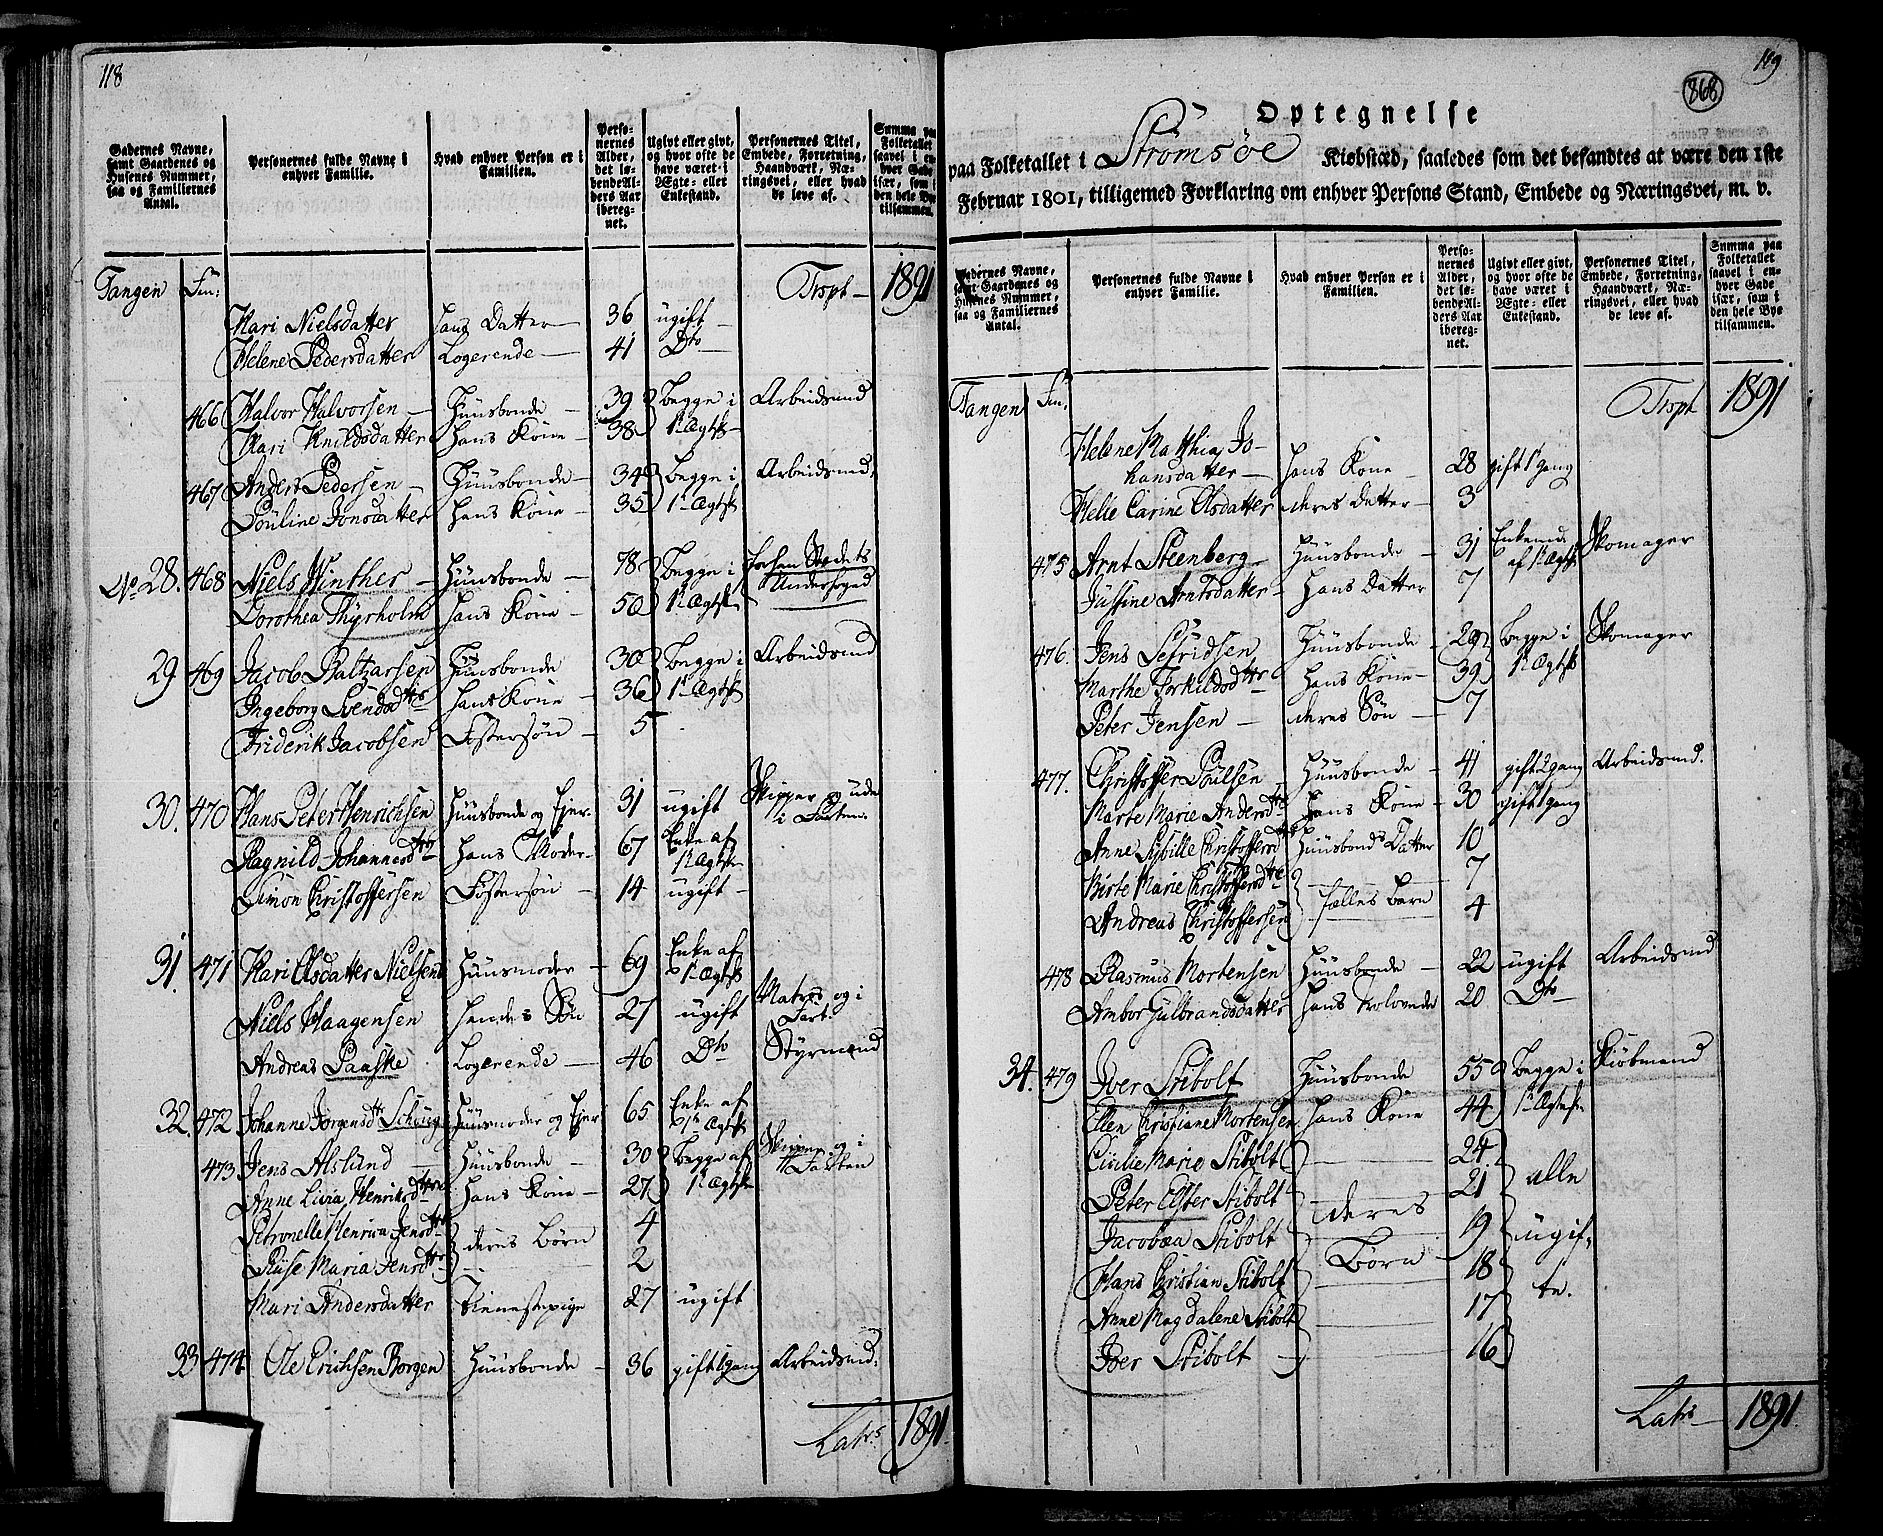 118
Gadernes Navne, samt Gaardenes og Husenes Nummer, saa og Familiernes Antal.
Personernes fulde Navne i enhver Familie.
Hvad enhver Person er i Familien.
Personernes Alder, det løbende Alders Aar iberegnet.
Ugivt eller givt, og hvor ofte de have været i Ægte- eller Enkestand.
Personernes Titel, Embede, Forretning, Haandværk, Næringsvei, eller hvad de leve af.
Summa paa Folketallet saavel i enhver Gade især, som i den hele Bye tilsammen.
Tangen Fm: Trspt — 1891
Mari Nielsdatter hans Datter 36 ugift
Helene Pedersdatter Logerende 41 Dto
466 Halvor Halvorsen Huusbonde 39 begge i Arbeidsmd
Mari Knudsdatter hans Kone 38 1te Ægtsk
467 Anders Pedersen Huusbonde 34 begge i Arbeidsmd
Pouline Jonsdatter hans Kone 35 1te Ægtsk
No. 28. 468 Niels Winther Huusbonde 78 begge i Stadets
Dorothea Thyrholm hans Kone 50 1te Ægtsk Underfoged
29 469 Jacob Baltzarsen Huusbonde 30 begge i Arbeidsmd
Ingeborg Svendsdtr hans Kone 36 1te Ægtsk
Friderik Jacobsen Fostersøn 5
30. 470 Hans Peter Henrichsen Huusbonde og Ejer 31 ugift Skipper ude i Farten
Ragnild Johannesdtr hans Moder 67 Enke af 1te Ægtsk
Simon Christoffersen Fostersøn 14 ugift
31. 471 Kari Olsdatter Nielsens Huusmoder 69 Enke af 1te Ægtsk
Niels Haagensen hendes Søn 27 ugift Matros og i Fart.
Andreas Paaske Logerende 46 Dto Styrmand
32. 472 Johanne Jørgensdtr Huusmoder og Ejer 65 Enke af 1te Ægtsk
473 Jens Aslund Huusbonde 30 begge af Skipper og i
Anne Livia Henriksdtr hans Kone 27 1te Ægtsk Farten
Petronelle Henrica Jensdtr 4
deres Børn
Maria Jensdtr 2
Mari Andersdatter Tienestepige 27 ugift
33 474 Ole Erichsen Borgen Huusbonde 36 gift 1 gang Arbeidsmd.
Latrs 1891.
119
868
Optegnelse
paa Folketallet i Strømsøe Kiøbstæd, saaledes som det befandtes at være den 1ste
Februar 1801, tilligemed Forklaring om enhver Persons Stand, Embede og Næringsvei, m. v.
Gadernes Navne, samt Gaardenes og Husenes Nummer, saa og Familiernes Antal.
Personernes fulde Navne i enhver Familie.
Hvad enhver Person er i Familien.
Personernes Alder, det løbende Alders Aar iberegnet.
Ugivt eller givt, og hvor ofte de have været i Ægte- eller Enkestand.
Personernes Titel, Embede, Forretning, Haandværk, Næringsvei, eller hvad de leve af.
Summa paa Folketallet saavel i enhver Gade især, som i den hele Bye tilsammen.
Tangen Fm. Trspt 1891
Helene Matthia Jo-
hansdatter hans Kone 28 gift 1 gang
Helle Carine Olsdatter deres Datter 3
475 Arnt Steenberg Huusbonde 31 Enkemd af 1te Ægtsk Skomager
Jussine Arntsdatter hans Datter 7
476. Jens Huusbonde 29 begge i Skomager
Marthe Torkildsdtr hans Kone 39 1te Ægtsk
Peter Jensen deres Søn 7
477. Christoffer Poulsen Huusbonde 41 gift 2 gang Arbeidsmd.
Marte Marie Andersdtr hans Kone 30 gift 1 gang
Anne Sybille Christoffersdtr Huusbonds Datter 10
Birte Marie Christoffersdtr 7
fælles Børn
Andreas Christoffersen 4
478 Rasmus Mortensen Huusbonde 22 ugift Arbeidsmd
Ambor Gulbrandsdatter hans trolovede 20 Dto
34. 479 Iver Stibolt Huusbonde 55 begge i Kiøbmand
Ellen Christiane Mortensen hans Kone 44 1te Ægtesk
Cicilie Marie Stibolt 24
Peter Elster Stibolt 21 alle
deres
Jacobæa Stibolt 19 ugif-
Børn
Hans Christian Stibolt 18
te.
Anne Magdalene Stibolt 17
Iver Stibolt 16
Latrs 1891.